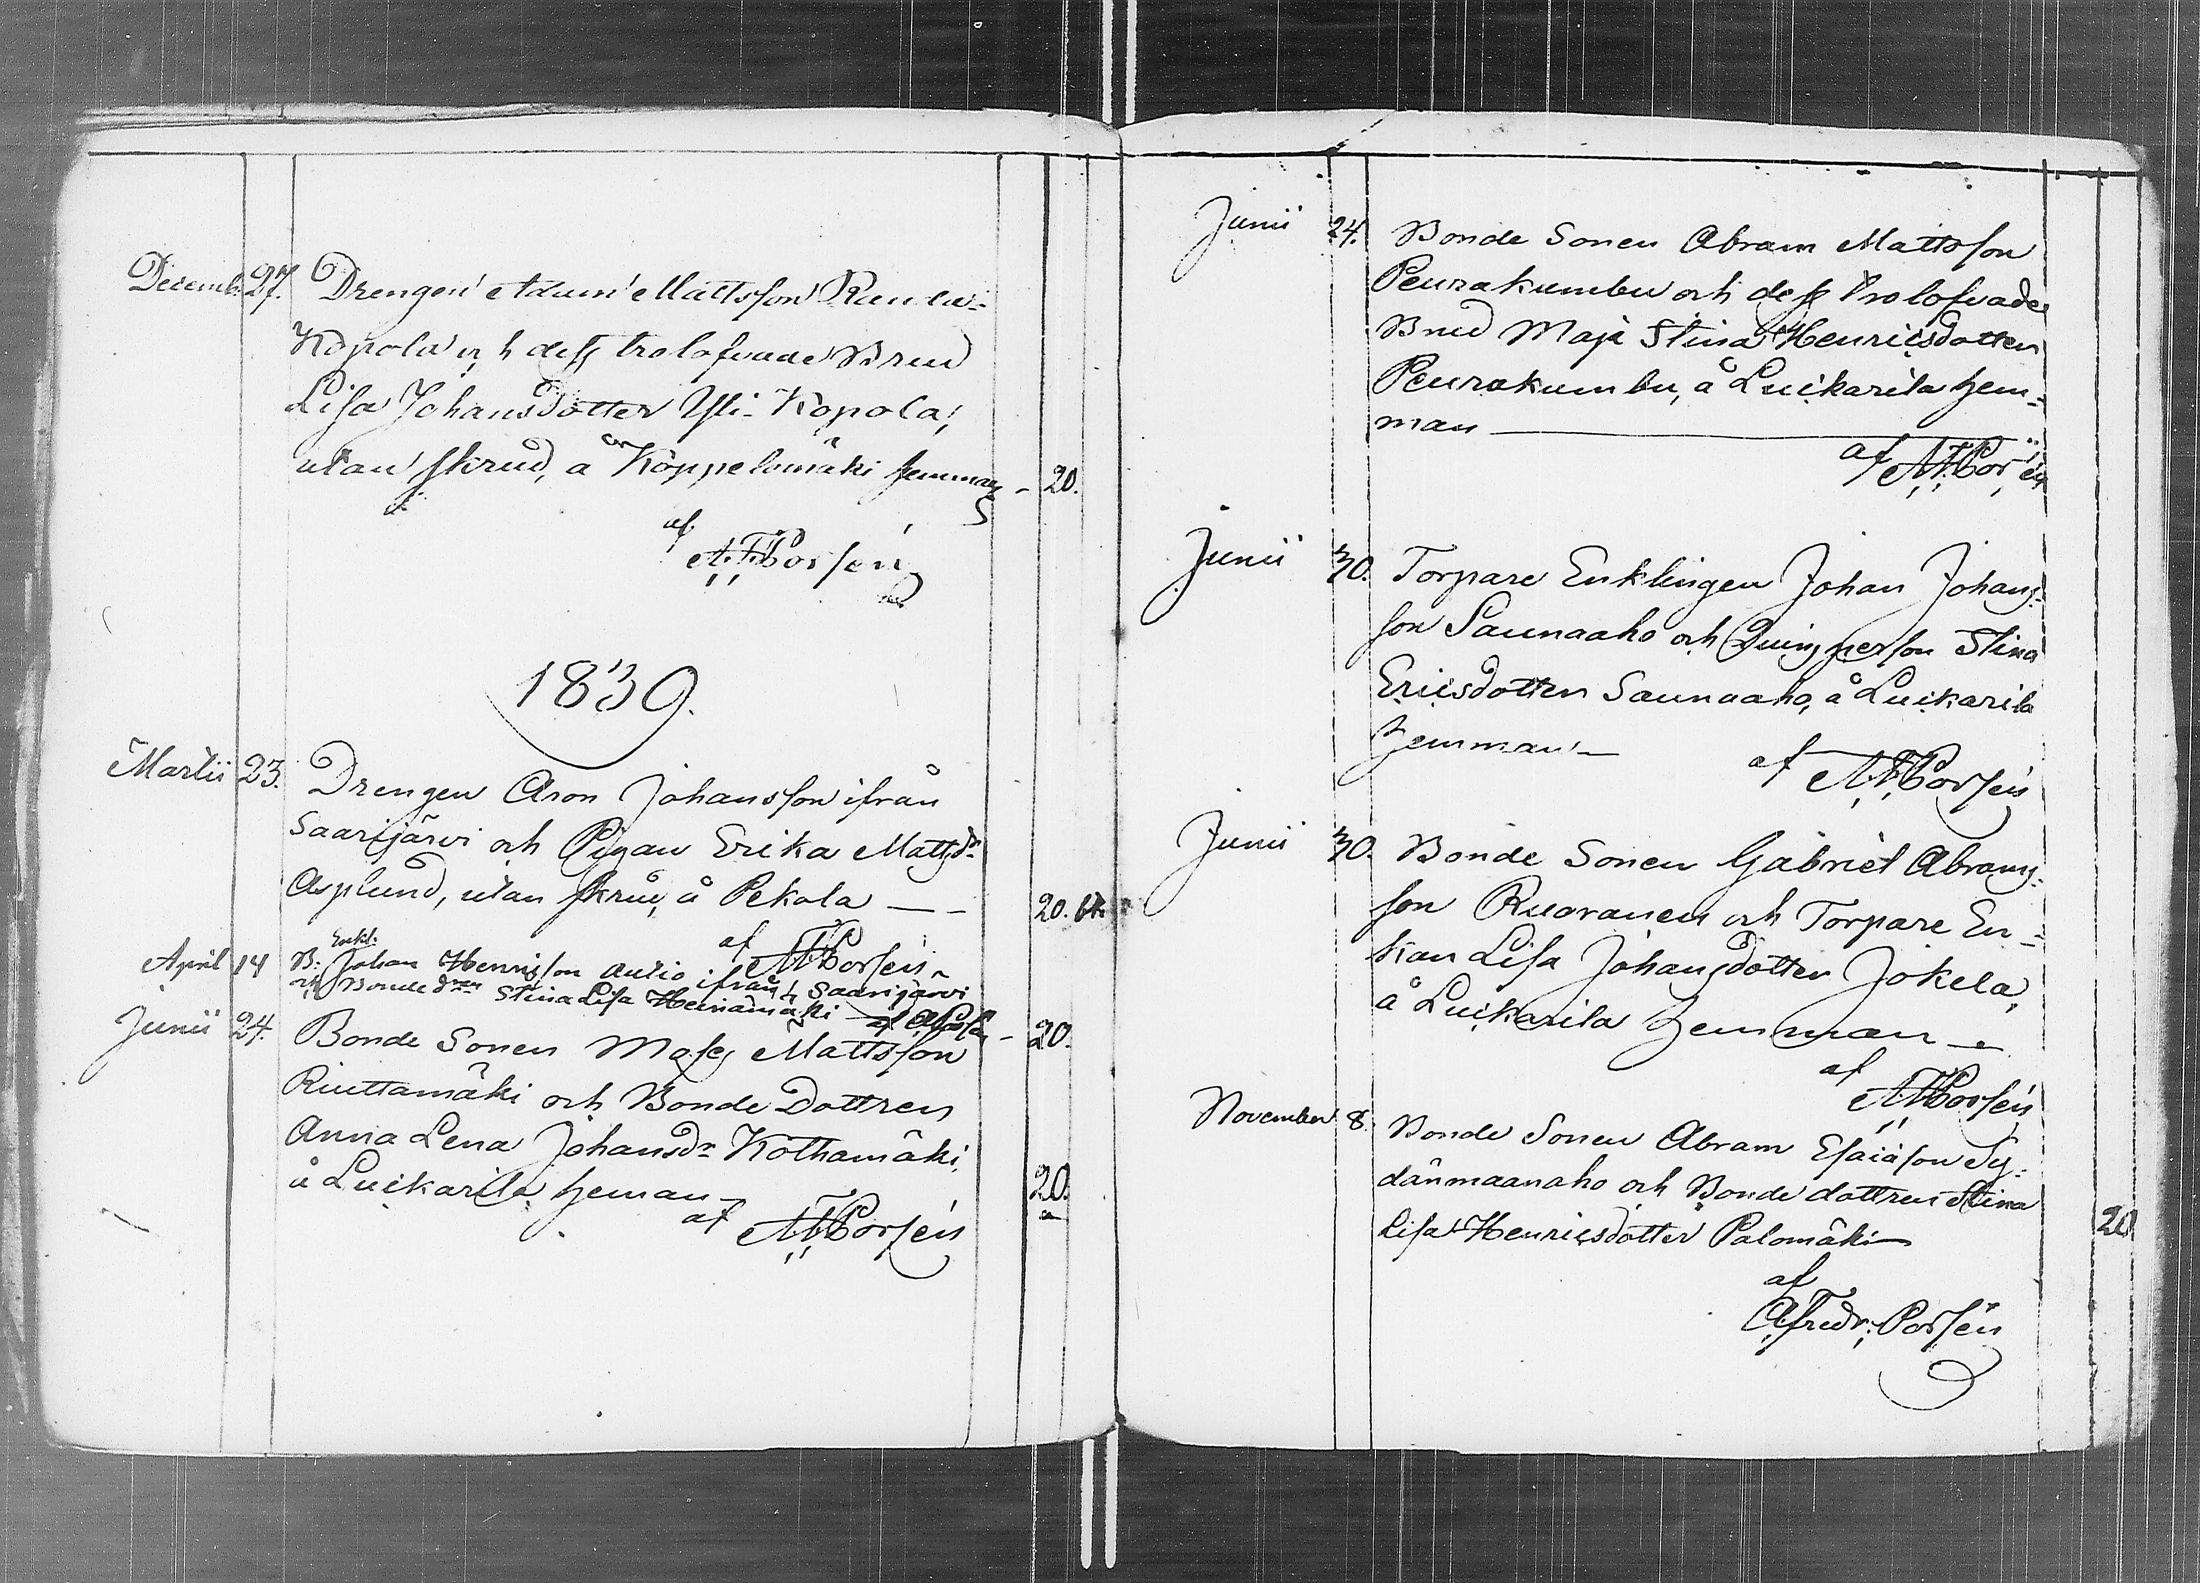 Decemb: 27. Drengen Adam Mattsson Ranta-
Kopola och dess trolofvade Brud
Lisa Johansdotter Yli-Kopola,
utan skrud, å Koppelomäki hemman - 20.
af
A. F. Borsén
1839.
Martii 23. Drengen Aron Johansson ifrån
Saarijärvi och Pigan Erika Mattsdr
Asplund, utan skrud, å Pekola — 20. bk
af A F Borsén
April 14 B: Enkl: Johan Henrisson Autio ifrån Saarijärvi
och Bonde dren Stina Lisa Heinämäki af - 20.
Junii 24. Bonde Sonen Mats Mattsson
Riuttamäki och Bonde Dottren
Anna Lena Johansdr Kothamäki,
å Luikarila heman 20.
af A F Borsén
Junii 24. Bonde Sonen Abram Mattsson
Peurakumbu och dess trolofvade
Brud Maja Stina Henricsdotter
Peurakumbu, å Luikarila hem-
man —
af A F Borsén
Junii 30. Torpare Enklingen Johan Johans-
son Saunaaho och Qvinsperson Stina
Ericsdotter Saunaaho, å Luikarila
hemman —
af A F Borsén
Junii 30. Bonde Sonen Gabriel Abrams-
son Ruoranen och Torpare En-
kan Lisa Johansdotter Jokela,
å Luikarila hemman —
af
A F Borsén
November 8. Bonde Sonen Abram Esaiason Sy-
dänmaanaho och Bonde dottren Stina
Lisa Henricsdotter Palomäki — 20
af
A. Fredr. Borsén